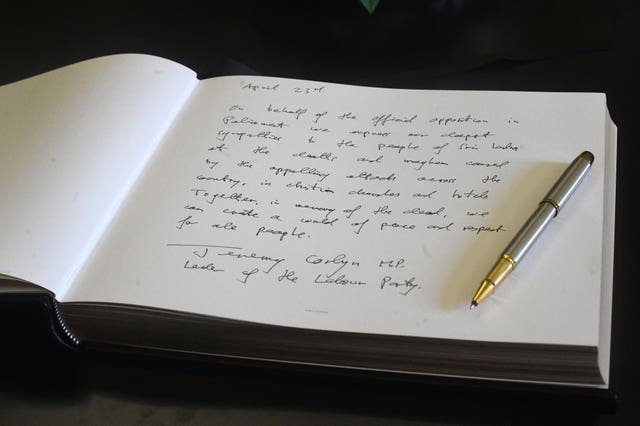 April 23rd
On behalf of the official opposition in
Parliament we express our deepest
sympathies to the people of Sri Lanka
at the deaths and mayhem caused
by the appalling attacks across the
country, in christian churches and hotels
Together, in memory of the dead, we
can create a world of peace and respect
for all people.
Jeremy Corbyn MP.
Leader of the Labour Party.